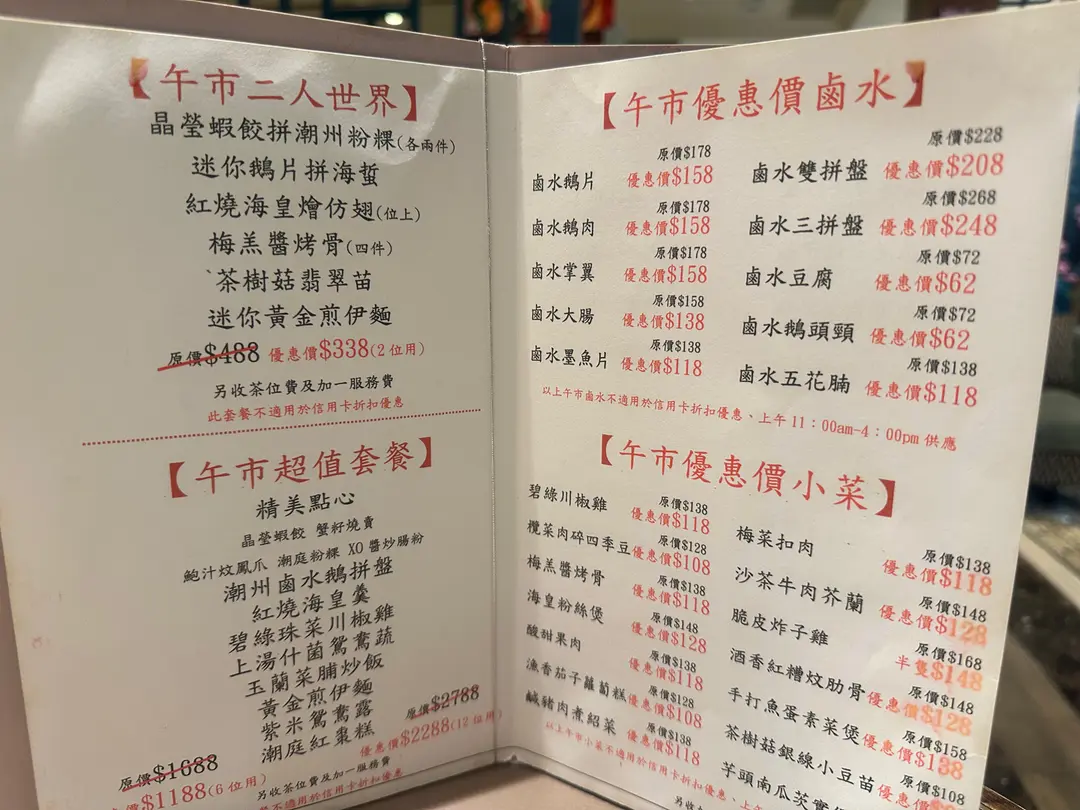 【午市二人世界】
晶瑩蝦餃拼潮州粉粿(各兩件)
迷你鵝片拼海蜇
紅燒海皇燴仿翅(位上)
梅羔醬烤骨(四件)
茶樹菇翡翠苗
迷你黃金煎伊麵
原價$488 優惠價$338(2位用)
另收茶位費及加一服務費
此套餐不適用於信用卡折扣優惠
【午市超值套餐】
精美點心
晶瑩蝦餃 蟹籽燒賣
鮑汁炆鳳爪 潮庭粉粿 XO醬炒腸粉
潮州鹵水鵝拼盤
紅燒海皇羹
碧綠珠菜川椒雞
上湯什菌鴛鴦蔬
玉蘭菜脯炒飯
黃金煎伊麵
紫米鴛鴦露
潮庭紅棗糕
原價$2788
優惠價$2288(12位用)
原價$1688
價$1188(6位用)
另收茶位費及加一服務費
不適用於信用卡折扣優惠
【午市優惠價鹵水】
原價$178
鹵水鵝片 優惠價$158
原價$178
鹵水鵝肉 優惠價$158
原價$178
鹵水掌翼 優惠價$158
原價$158
鹵水大腸 優惠價$138
原價$138
鹵水墨魚片 優惠價$118
原價$228
鹵水雙拼盤 優惠價$208
原價$268
鹵水三拼盤 優惠價$248
原價$72
鹵水豆腐 優惠價$62
原價$72
鹵水鵝頭頸 優惠價$62
原價$138
鹵水五花腩 優惠價$118
以上午市鹵水不適用於信用卡折扣優惠、上午11：00am-4：00pm供應
【午市優惠價小菜】
碧綠川椒雞 原價$138
優惠價$118
欖菜肉碎四季豆 原價$128
優惠價$108
梅羔醬烤骨 原價$138
優惠價$118
海皇粉絲煲 原價$148
優惠價$128
酸甜果肉 原價$138
優惠價$118
漁香茄子蘿蔔糕 原價$128
優惠價$108
鹹豬肉煮紹菜 原價$138
優惠價$118
梅菜扣肉 原價$138
優惠價$118
沙茶牛肉芥蘭 原價$148
優惠價$128
脆皮炸子雞 原價$168
半隻$148
酒香紅糟炆肋骨 原價$148
優惠價$128
手打魚蛋素菜煲 原價$158
優惠價$138
茶樹菇銀線小豆苗 原價$108
芋頭南瓜芡實
以上午市小菜不適用於信用卡折扣優惠、上午
另收